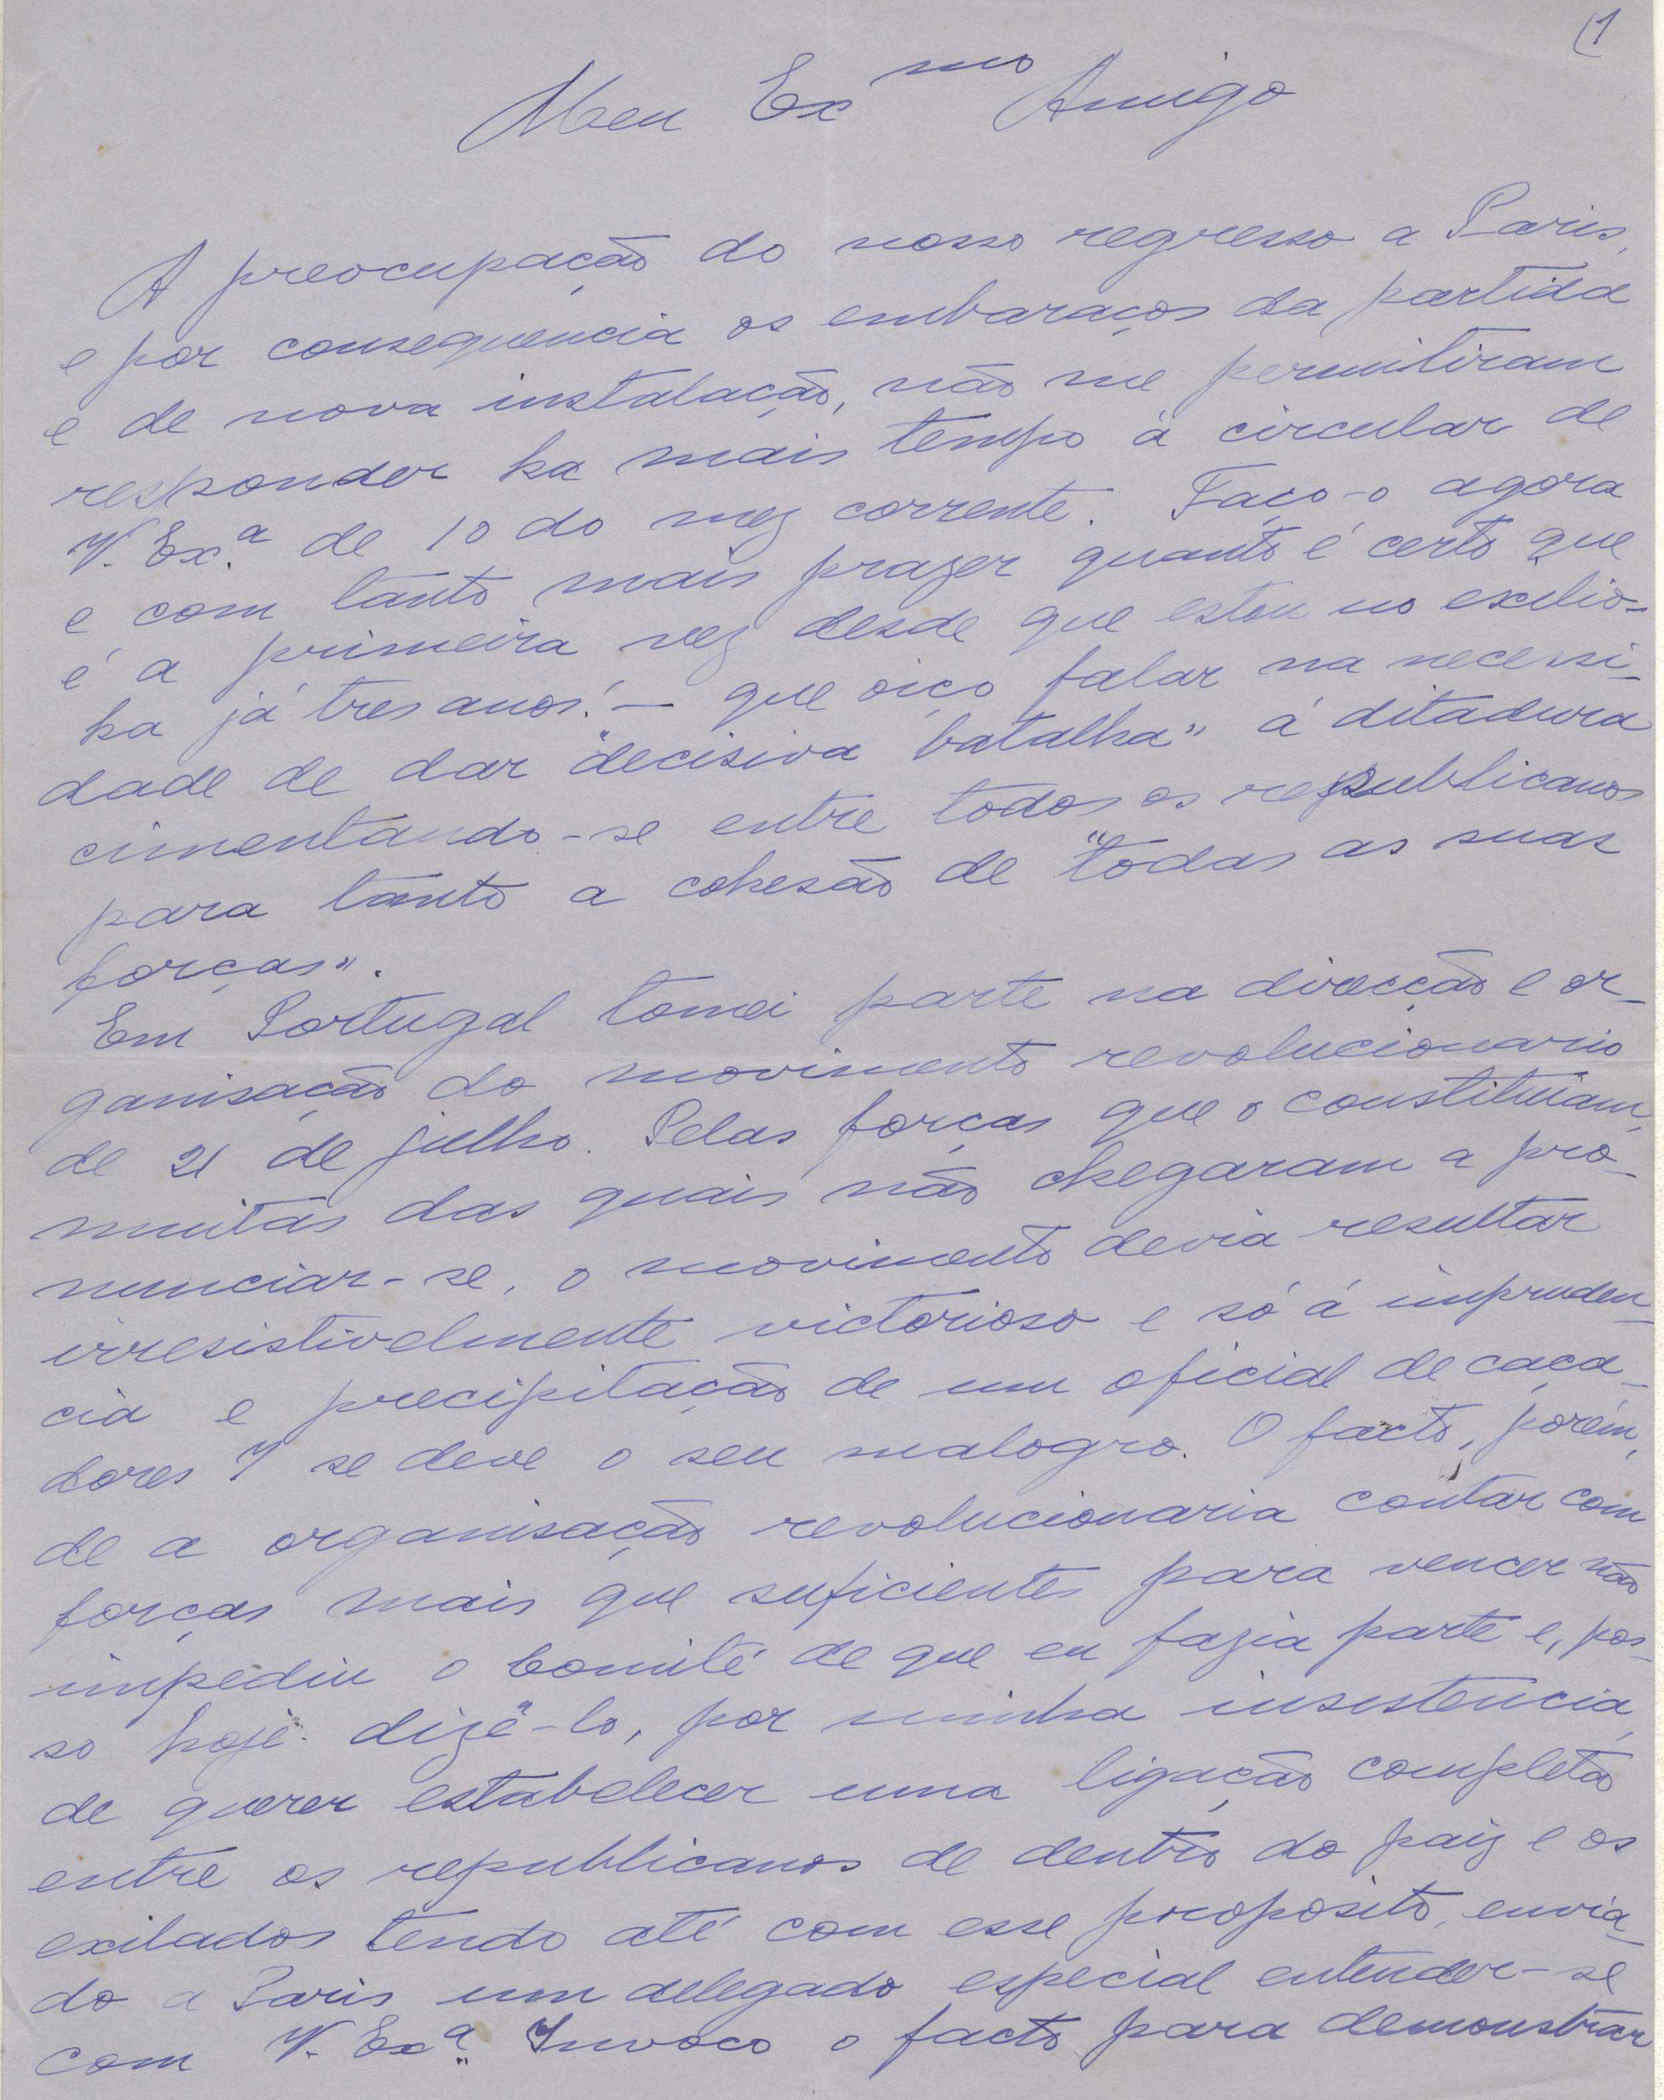 (1
Meu Ex.mo Amigo
A preocupação do nosso regresso a Paris,
e por consequencia os embaraços da partida
e de nova instalação, não me permitiram
responder ha mais tempo á circular de
V. Ex.ª de 10 do mez corrente. Faço-o agora
e com tanto mais prazer quanto é certo que
é a primeira vez desde que estou no exilio-
ha já tres anos! — que oiço falar na necessi-
dade de dar "decisiva batalha" á ditadura
cimentando-se entre todos os republicanos
para tanto a cohesão de "todas as suas
forças".
Em Portugal tomei parte na direcção e or-
ganisação do movimento revolucionario
de 21 de julho. Pelas forças que o constituiam,
muitas das quais não chegaram a pro-
nunciar-se, o movimento devia resultar
irresistivelmente victorioso e só á impruden-
cia e precipitação de um oficial de caça-
dores 7 se deve o seu malogro. O facto, porém,
de a organisação revolucionaria contar com
forças mais que suficientes para vencer não
impediu o Comité de que eu fazia parte e, pos-
so hoje dizê-lo, por minha insistencia,
de querer estabelecer uma ligação completa
entre os republicanos de dentro do paiz e os
exilados tendo até com esse proposito, envia-
do a Paris um delegado especial entender-se
com V. Ex.ª Invoco o facto para demonstrar